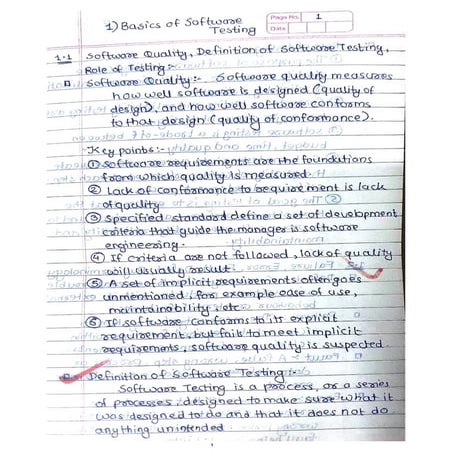 1) Basics of Software
Testing
Page No. 1
Date
1.1 Software Quality, Definition of Software Testing,
Role of Testing:-
Software Quality:- Software quality measures
how well software is designed (quality of
design), and how well software conforms
to that design (quality of conformance).
Key points:-
① Software requirements are the foundations
from which quality is measured.
② Lack of conformance to requirement is lack
of quality
③ Specified standard define a set of development
criteria that guide the manager is software
engineering.
④ If criteria are not followed, lack of quality
will usually result.
⑤ A set of implicit requirements often goes
unmentioned, for example ease of use,
maintainability etc.
⑥ If software conforms to its explicit
requirement, but fails to meet implicit
requirements, software quality is suspected.
Definition of Software Testing:-
Software Testing is a process, or a series
of processes, designed to make sure what it
was designed to do and that it does not do
anything unintended